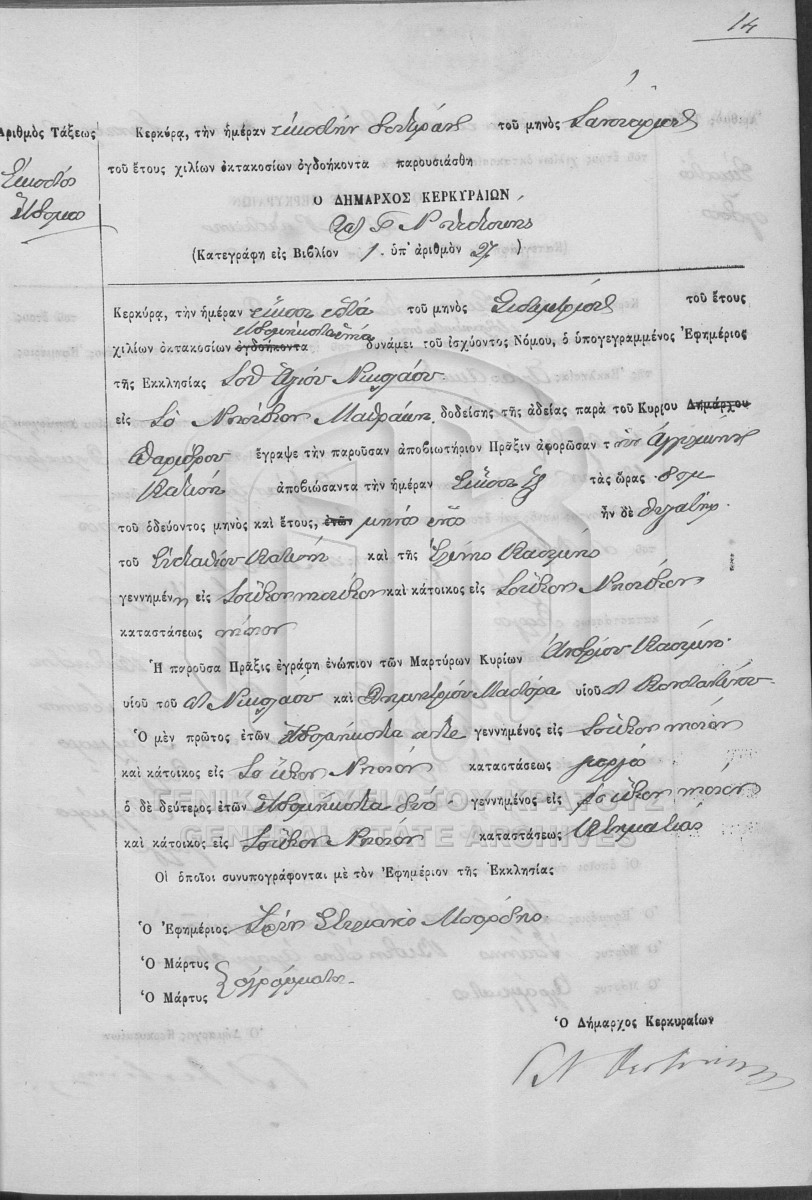 14
Ἀριθμὸς Τάξεως
Εἰκοστὸς
Ἕβδομος
Κερκύρα, τὴν ἡμέραν εἰκοστὴν δευτέραν τοῦ μηνὸς Ἰανουαρίου
τοῦ ἔτους χιλίων ὀκτακοσίων ὀγδοήκοντα παρουσιάσθη
Ο ΔΗΜΑΡΧΟΣ ΚΕΡΚΥΡΑΙΩΝ
Γ Ν
(Κατεγράφη εἰς Βιβλίον 1. ὑπ' ἀριθμὸν 27)
Κερκύρα, τὴν ἡμέραν εἴκοσι ἑπτὰ τοῦ μηνὸς Σεπτεμβρίου τοῦ ἔτους
ἑβδομήκοντα ἐννέα
χιλίων ὀκτακοσίων ὀγδοήκοντα δυνάμει τοῦ ἰσχύοντος Νόμου, ὁ ὑπογεγραμμένος Ἐφημέριος
τῆς Ἐκκλησίας τοῦ Ἁγίου Νικολάου
εἰς τὸ Νησίδιον Μαθράκι δοδείσης τῆς ἀδείας παρὰ τοῦ Κυρίου Δημάρχου
Παρέδρου ἔγραψε τὴν παροῦσαν ἀποβιωτήριον Πρᾶξιν ἀφορῶσαν τὴν
ἀποβιώσαντα τὴν ἡμέραν εἴκοσι ἓξ τὰς ὥρας
τοῦ ὁδεύοντος μηνὸς καὶ ἔτους, ἐτῶν μηνὸς ἑνὸς ἦν δὲ θυγάτηρ
τοῦ καὶ τῆς Ἑλένης Κασίμης
γεννημένη εἰς τοῦτον νησίδιον καὶ κάτοικος εἰς τοῦτον Νησίδιον
καταστάσεως νήπιον
Ἡ παροῦσα Πρᾶξις ἐγράφη ἐνώπιον τῶν Μαρτύρων Κυρίων Ἀνδρέου Κασίμη
υἱοῦ τοῦ Νικολάου καὶ Δημητρίου υἱοῦ Κωνσταντίνου
Ὁ μὲν πρῶτος ἐτῶν ἑβδομήκοντα πέντε γεννημένος εἰς τοῦτον νησίον
καὶ κάτοικος εἰς τοῦτον Νησίον καταστάσεως γεωργὸς
ὁ δὲ δεύτερος ἐτῶν ἑβδομήκοντα δύο γεννημένος εἰς τοῦτον νησίον
καὶ κάτοικος εἰς τοῦτον Νησίον καταστάσεως κτηματίας
Οἱ ὁποῖοι συνυπογράφονται μὲ τὸν Ἐφημέριον τῆς Ἐκκλησίας
Ὁ Ἐφημέριος
Ὁ Μάρτυς
ἀγράμματοι
Ὁ Μάρτυς
Ὁ Δήμαρχος Κερκυραίων
ΓΕΝΙΚΑ ΑΡΧΕΙΑ ΤΟΥ ΚΡΑΤΟΥΣ
GENERAL STATE ARCHIVES